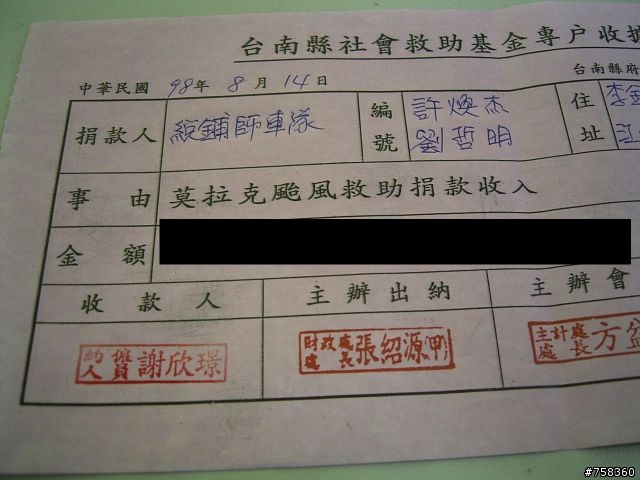 台南縣社會救助基金專戶收據
中華民國 98年 8月 14日
台南縣府
捐款人
總鋪師車隊
編號
許煥杰
劉哲明
住址
李
事由
莫拉克颱風救助捐款收入
金額
收款人
主辦出納
主辦會
約僱人員 謝欣璟
財政處處長 張紹源(甲)
主計處處長 方
#758360